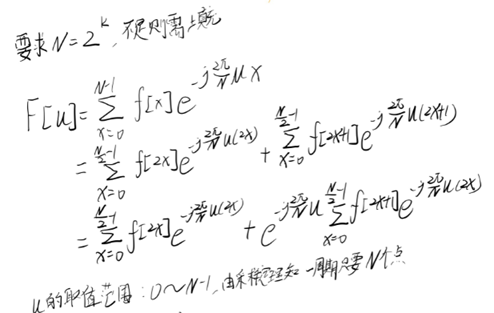 要求 N=2^k, 不足则需上就
F[u]=∑_{x=0}^{N-1} f[x]e^{-j\frac{2π}{N}ux}
=∑_{x=0}^{\frac{N}{2}-1} f[2x]e^{-j\frac{2π}{N}u(2x)} + ∑_{x=0}^{\frac{N}{2}-1} f[2x+1]e^{-j\frac{2π}{N}u(2x+1)}
=∑_{x=0}^{\frac{N}{2}-1} f[2x]e^{-j\frac{2π}{N}u(2x)} + e^{-j\frac{2π}{N}u} ∑_{x=0}^{\frac{N}{2}-1} f[2x+1]e^{-j\frac{2π}{N}u(2x)}
u的取值范围:0~N-1,由采样定理知一周期只要N个点